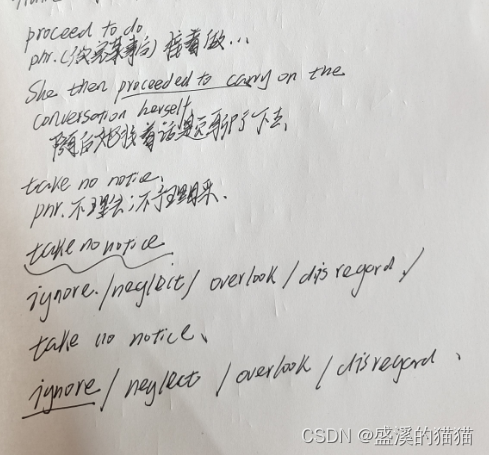 proceed to do
phr.(做完某事后)接着做...
She then proceeded to carry on the
conversation herself
随后她接着话题聊了下去、
take no notice、
phr.不理会;不予理睬.
take no notice
ignore./neglect/overlook/disregard/
take no notice、
ignore/neglect/overlook/disregard、
CSDN @盛溪的猫猫